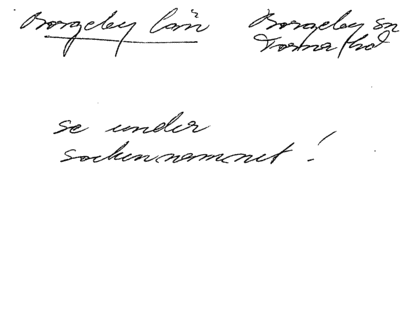 Borgeby län
Borgeby sn
Torna hd
se under
sockennamnet!